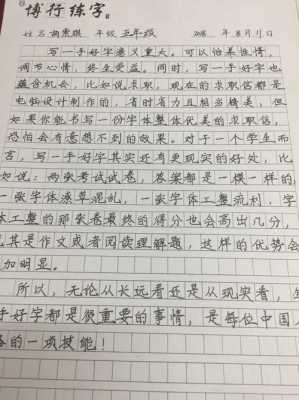 博行练字
姓名 年级 五年级 年8月11日
写一手好字意义重大。可以怡养性情,
调节心情,终生受益。同时,写一手好字也
蕴含机会,比如说求职,现在的求职信都是
电脑设计制作的,省时省力且相当精美,但
如果你能书写一份字体整体优美的求职信,
恐怕会有意想不到的效果。对于一个学生而
言,写一手好字其实还有更现实的好处,比
如说:两张考试试卷,答案都是一模一样的
一张字体潦草混乱,一张字体工整流利,字
体工整的那张卷最终的得分也会高出几分,
其是作文或者阅读理解题,这样的优势会
加明显。
所以,无论从长远看还是从现实看,
手好字都是很重要的事情,是每位中国
备的一项技能!